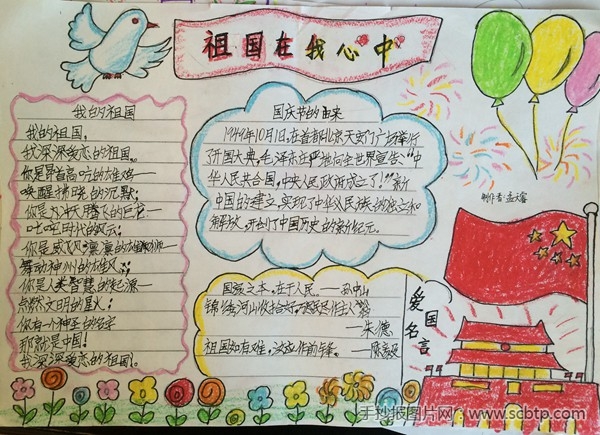 祖国在我心中
我的祖国
我的祖国。
我深深爱恋的祖国。
你是昂首高吭的雄鸡——
唤醒拂晓的沉默;
你是冲天腾飞的巨龙——
叱咤时代的风云;
你是威风凛凛的雄狮——
舞动神州的雄风;
你是人类智慧的起源——
点燃文明的星火;
你有一个神圣的名字
那就是中国!
我深深爱恋的祖国。
国庆节的由来
1949年10月1日,在首都北京天安门广场举行
了开国大典,毛泽东庄严地向全世界宣告"中
华人民共和国,中央人民政府成立了!"新
中国的建立,实现了中华民族的独立和
解放,开创了中国历史的新纪元。
制作者
国家之本,在于人民。——孙中山
锦绣河山收拾好,万民尽作主人翁
——朱德
祖国如有难,汝应作前锋。——陈毅
爱国
名言
手抄报图片网:www.scbtp.com